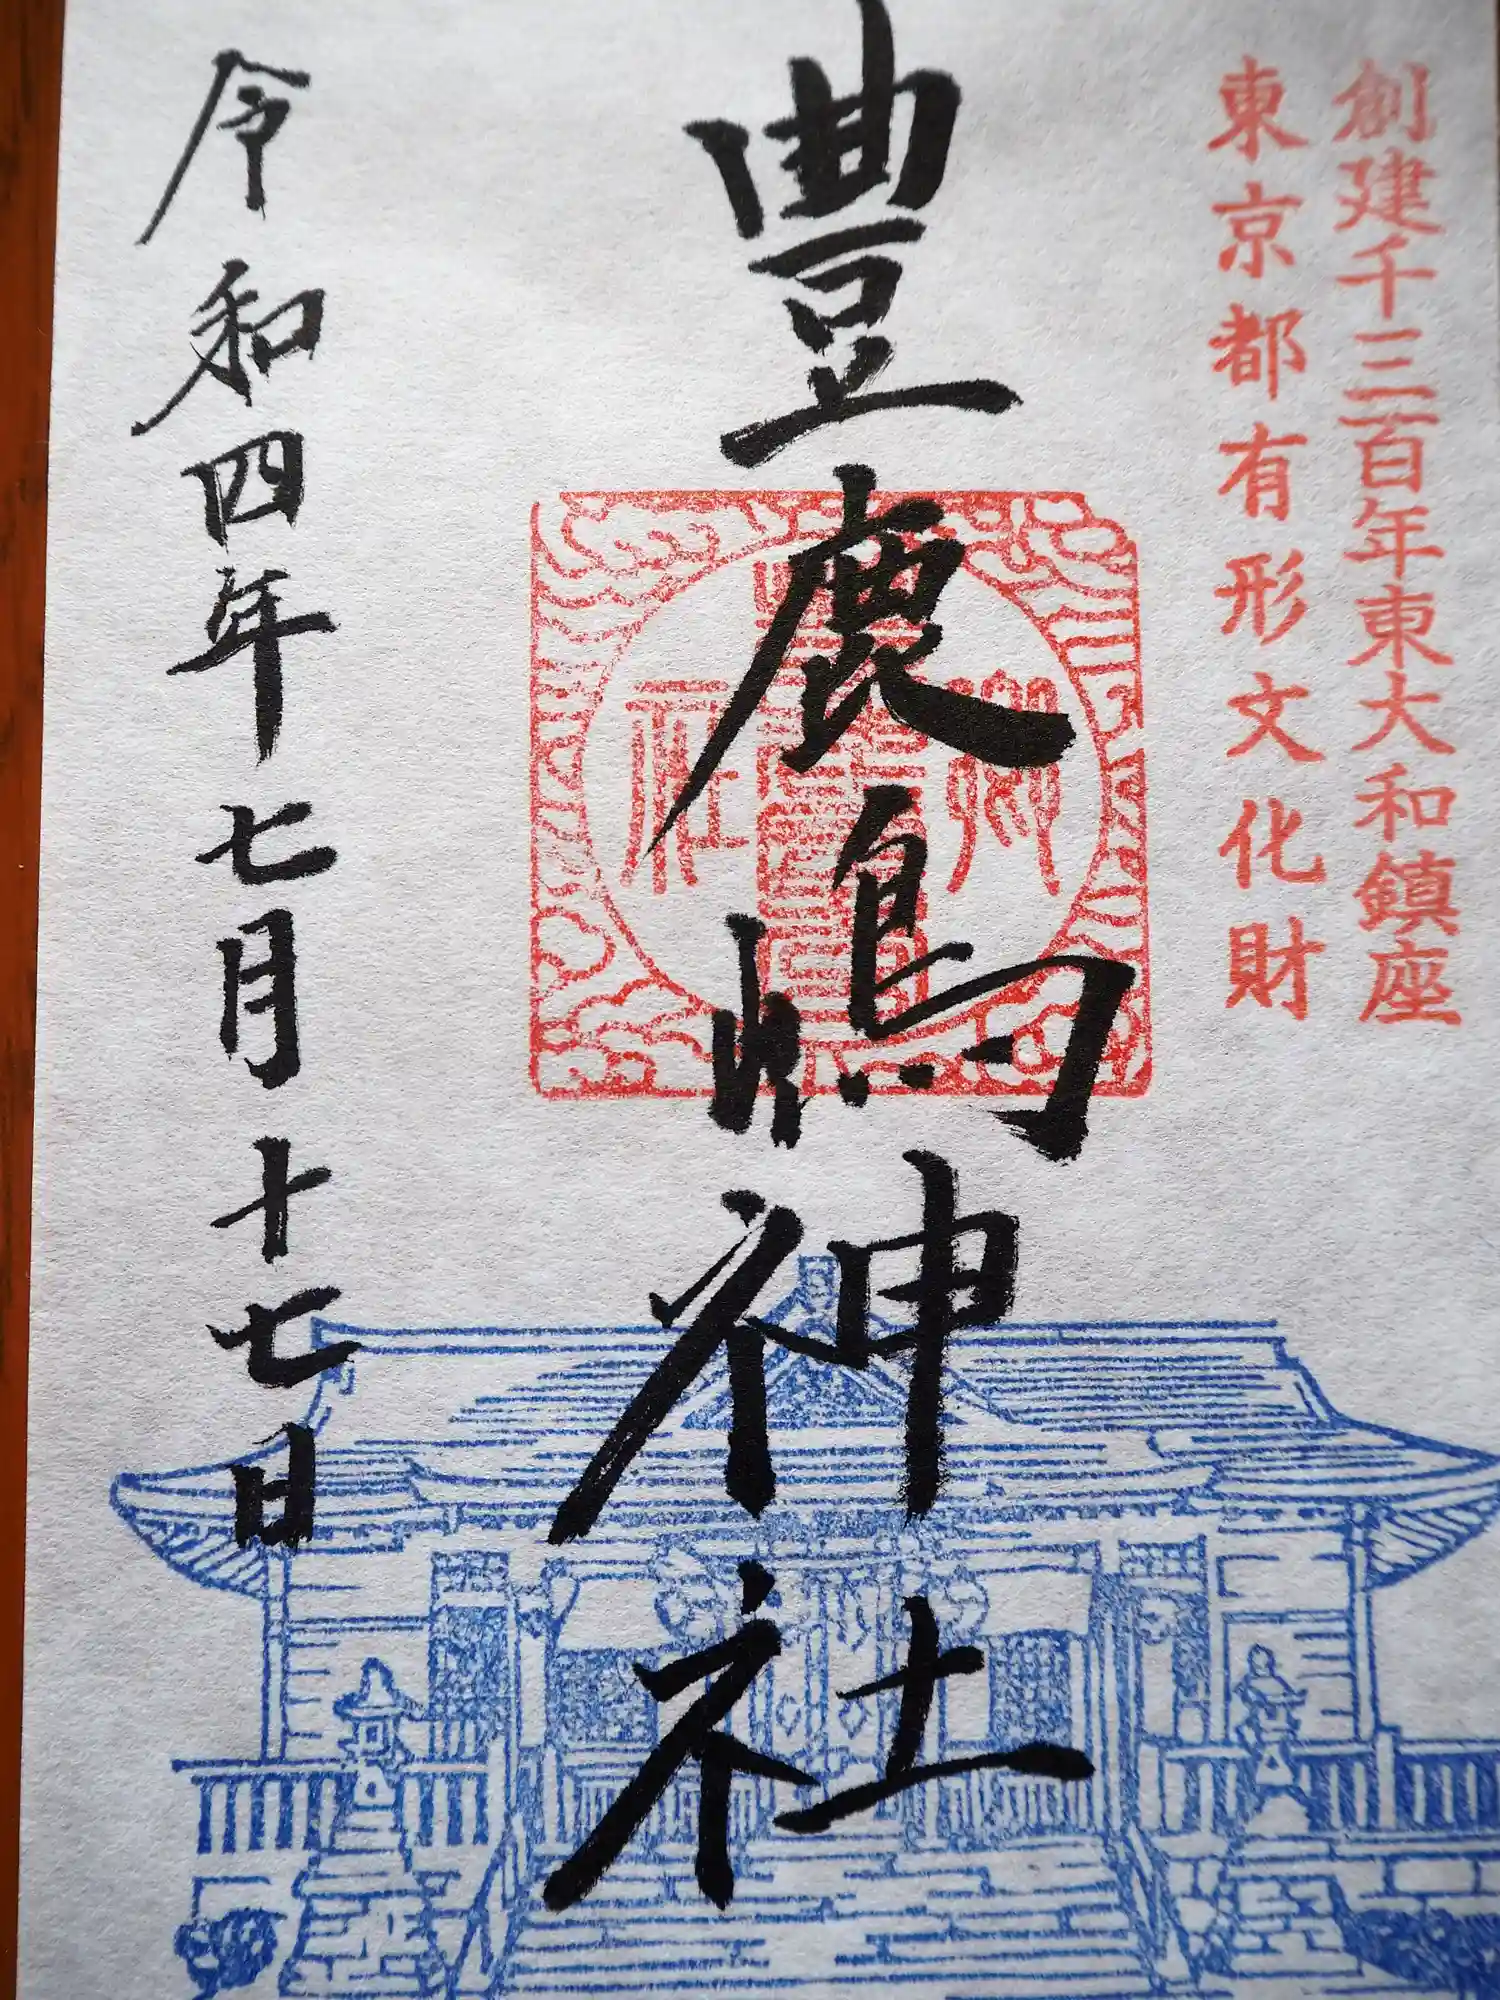 創建千三百年東大和鎮座
東京都有形文化財
豊鹿嶋神社
令和四年七月十七日